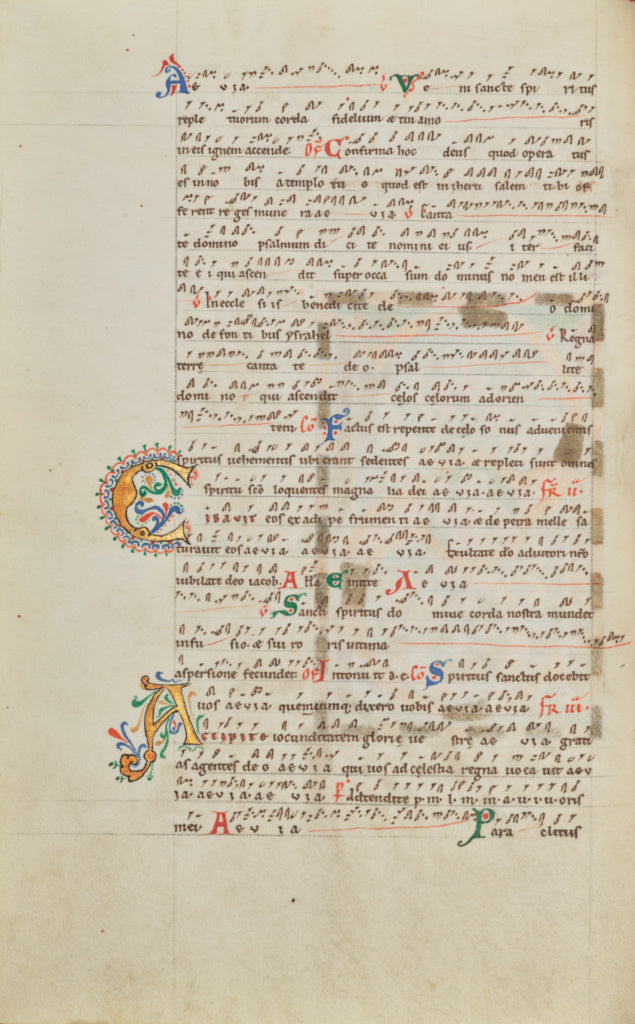 A e v ia V e ni sancte spi ri tus
reple tuorum corda fidelium & tui amo ris
in eis ignem accende. Of C onfirma hoc deus quod opera tus
es in no bis a templo tu o quod est in iheru salem ti bi of
fe rent reges mune ra ae v ia V Canta
te domino psalmum di ci te nomini ei us. i ter faci
te e i qui ascen dit super occa sum do minus no men est illi
V In eccle si is benedi cite de o domi
no de fon ti bus ysrahel V Regna
terre canta te de o. psal lite
domi no qui ascendit celos celorum ad orien
tem Co F actus est repente de celo so nus advenientis
spiritus vehementis ubi erant sedentes ae v ia & repleti sunt omnes
spiritu sco loquentes magna lia dei ae v ia ae v ia. fr ii.
C IBAVIT eos ex adi pe frumen ti ae v ia & de petra melle sa
turavit eos ae v ia ae v ia ae v ia. Exultate do adiutori nro
iubilate deo iacob. A lla E mitte A e v ia
V S ancti spiritus do mine corda nostra mundet
infu sio & sui ro ris intima
aspersione fecundet Of I ntonu it d. e. Co S piritus sanctus docebit
vos ae v ia quecumq; dixero vobis ae v ia ae v ia. fr iii.
A CCIPITE iocunditatem glorie ve stre ae v ia grati
as agentes de o ae v ia qui vos ad celestia regna vocavit aev
ia. ae v ia. ae v ia P Adtendite p. m. l. m. in. a. u. r. u. oris
mei A e v ia P ara clitus